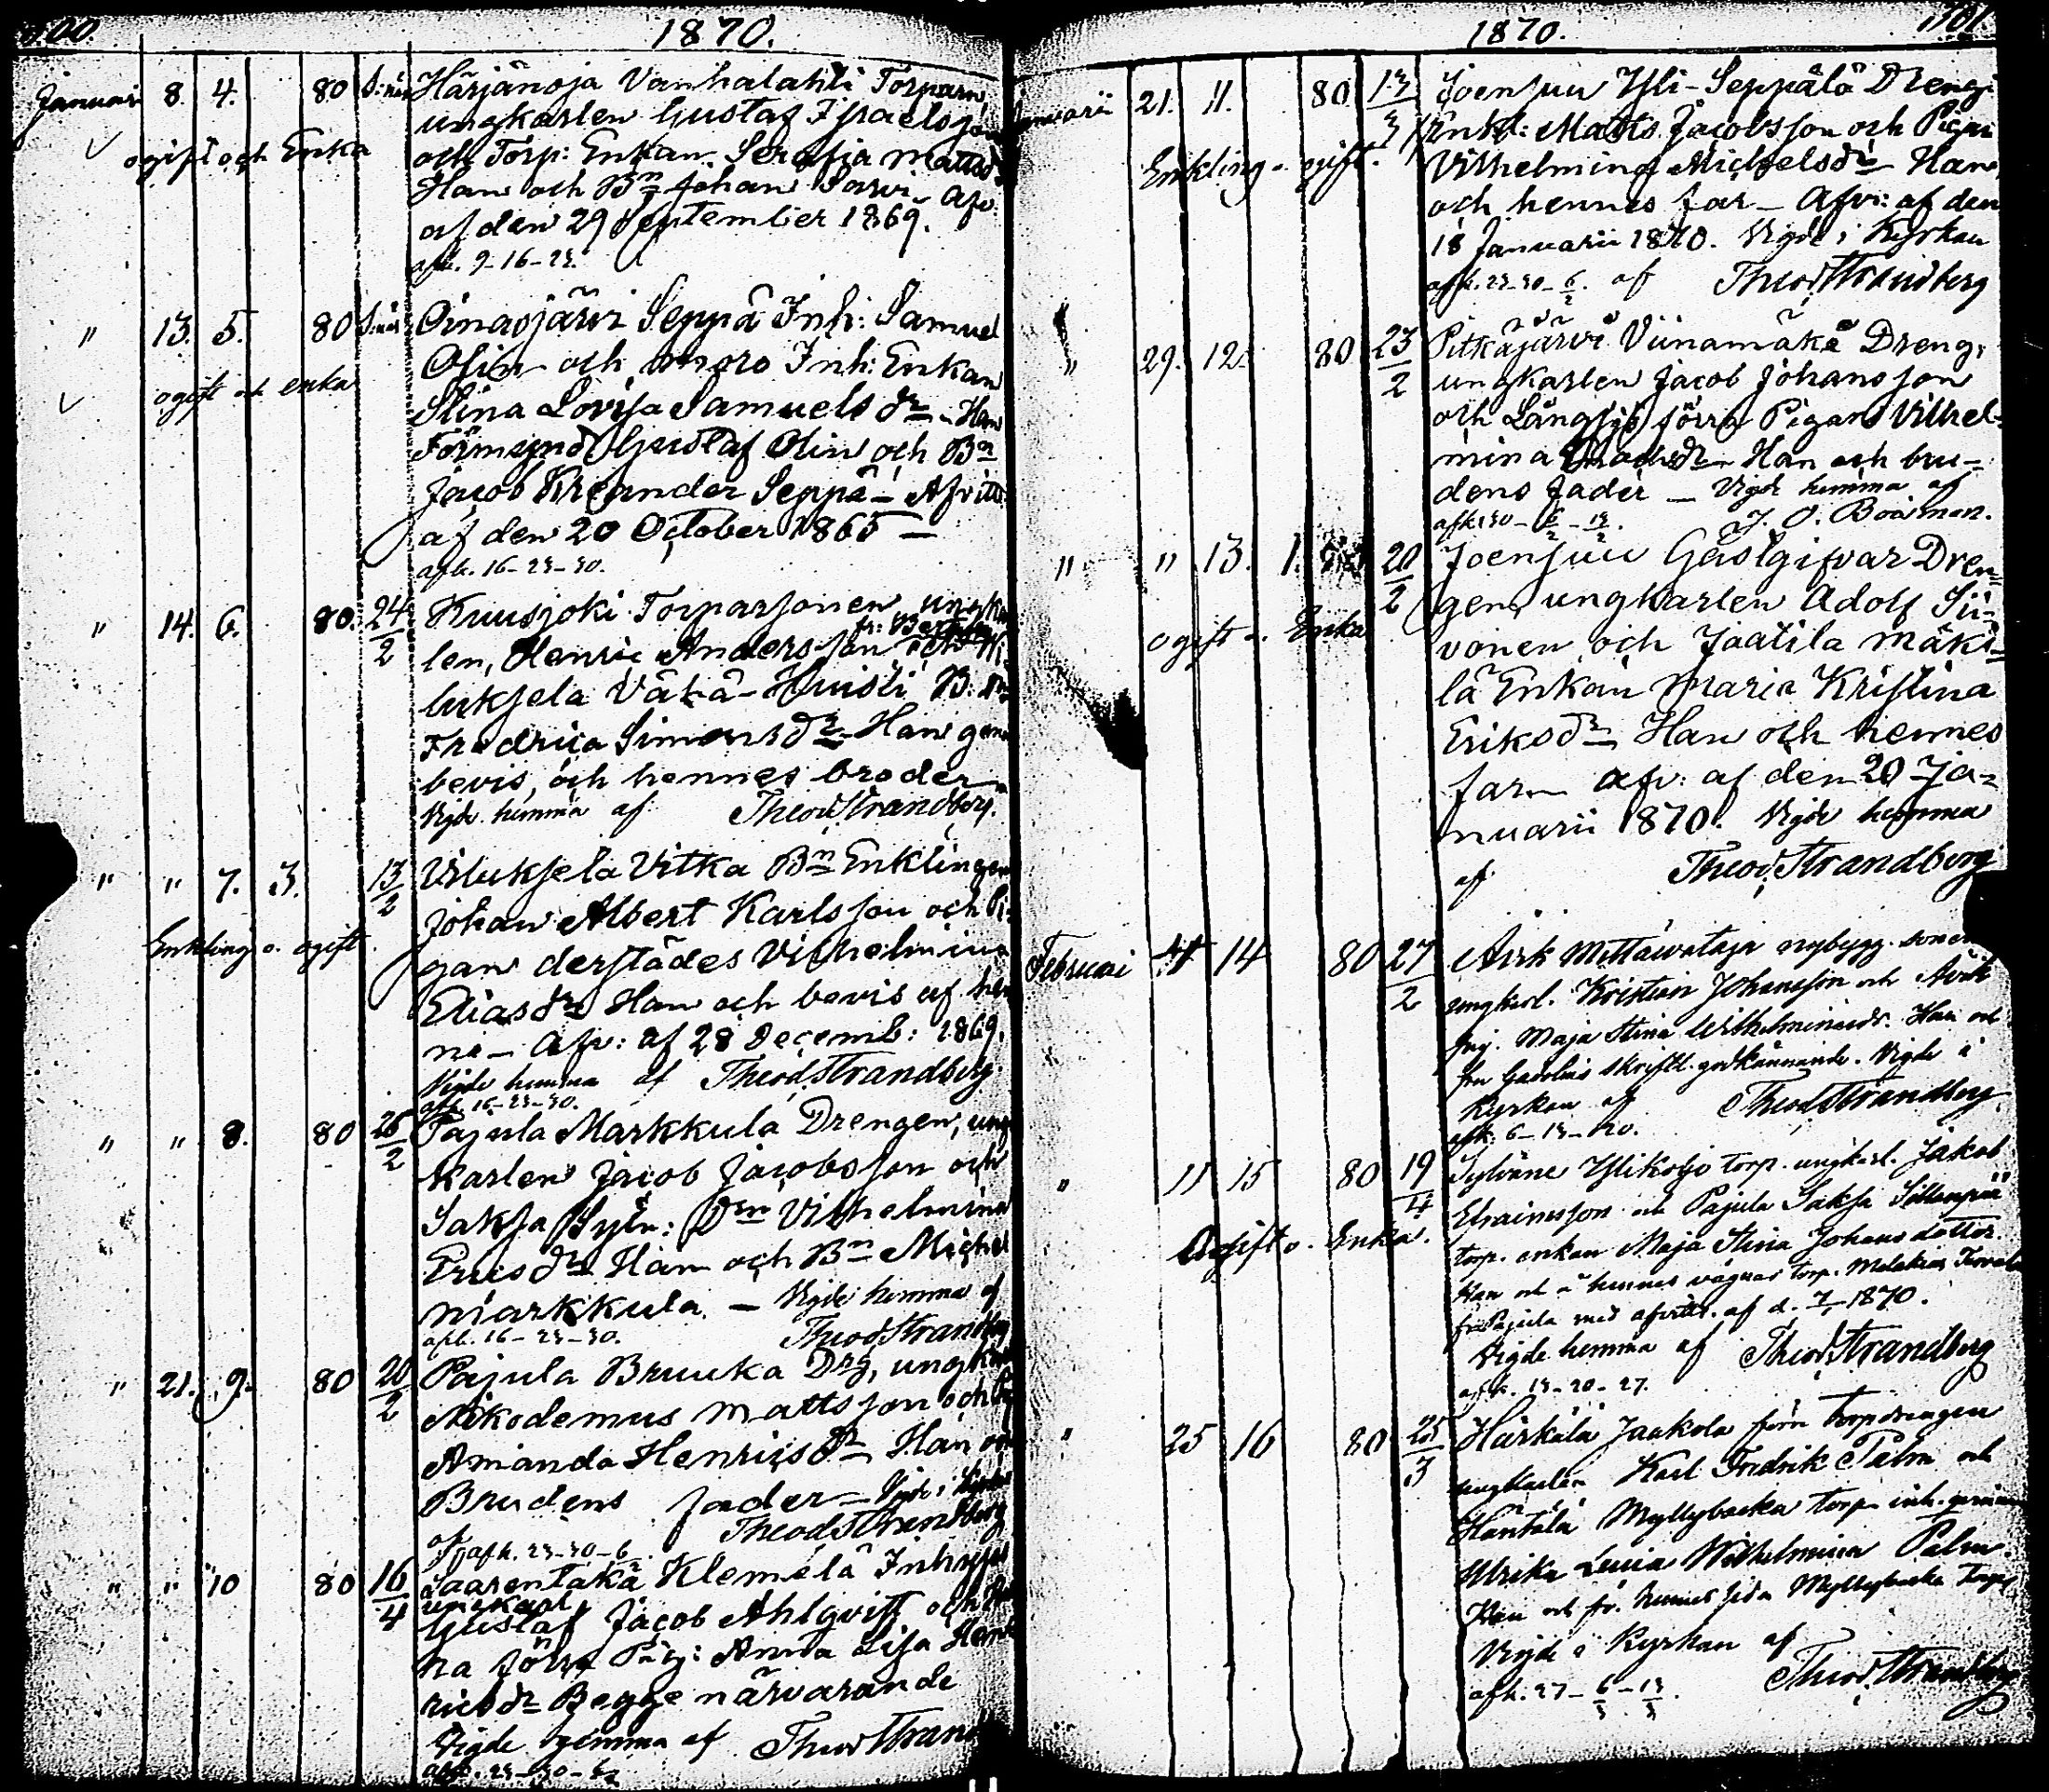 1870.
Januari 8. 4. 80 Härjänoja Vanhalahti Torparn
ungkarlen Gustaf Isracls son
ogift och Enka
och Torp: Enkan Serafia Mattsd
Han och Bn Johan Sarvi - Afv:
af den 29 September 1869.
afk. 9-16-23.
" 13. 5. 80 Oinasjärvi Seppä Inh: Samuel
Olin och Inh: Enkan
ogift och enka
Stina Lovisa Samuels dr - Han
Förmynd Gustaf Olin och Bn
Jacob Seppä - Afvitt:
af den 20 October 1865 -
afk. 16-23-30.
" 14. 6. 80. 24/2 Kuusjoki Torparsonen ungkar
len, Henric Andersson och Vi-
luksela Vähä-Huisti B. dn
Fredrica Simonsdr - Han gen
bevis, och hennes broder
Vigde hemma af Theod Strandberg.
" " 7. 3. 13/2 Viluksela Vitka Bn Enklingen
Johan Albert Karlsson och Pi-
Enkling o. ogift.
gan derstädes Vilhelmina
Eliasdr Han och bevis af hen
ne - Afv: af 28 Decemb: 1869.
Vigde hemma af Theod. Strandberg.
afk. 16-23-30.
" " 8. 80 26/2 Pajula Markkula Drengen, ung
karlen Jacob Jacobsson och
Saksa Dn Vilhelmina
Ericsdr Han och Bn Michel
Markkula - Vigde hemma af
afk. 16-23-30. Theod Strandberg
" 21. 9. 80 20/2 Pajula Bruuka Drg, ungkarl
Nikodemus Mattsson och Pig
Amanda Henricsdr Han och
Brudens fader - Vigde i Kyrkan
af Theod Strandberg
afk. 23-30-6/2.
" " 10 80 16/4 Saarentaka Klemelä Inhyses
ungkarl.
Gustaf Jacob Ahlqvist och
na förra Pig: Anna Lisa Hen
ricsdr Begge närvarande
Vigde hemma af Theod Strand
afk. 23-30-6/2
1870.
1101.
Januarii 21. 11. 80 13/3 Joensuu Yli-Seppälä Dreng
Enkl: Matts Jacobsson och Pigan
Enkling o. ogift.
Vilhelmina Michelsdr - Han
och hennes far - Afv: af den
18 Januarii 1870. Vigde i Kyrkan
afk. 23-30-6/2. af Theod Strandberg
" 29. 12. 80 23/2 Pitkäjärvi Viinamäkä Dreng,
ungkarlen Jacob Johansson
och Långsjö förra Pigan Vilhel-
mina Han och bru-
dens fader - Vigde hemma af
afk. 30-6/2-13/2. J. O. Boisman.
" " 13. 1. 20/2 Joensuu Gästgifvar Dren-
gen, ungkarlen Adolf Sii-
ogift o. Enka
vonen och Jaatila Mäki-
lä Enkan Maria Kristina
Eriksdr Han och hennes
far - afv: af den 20 Ja-
nuarii 1870. Vigde hemma
af Theod. Strandberg
Februari 14 80 27/2 Avik nybygg. sonen
ungkarl. Kristian Johansson och Avik
Maja Stina Wilhelminasdr. Han och
fru Gadolins skriftl. godkännande. Vigde i
Kyrkan af Theod Strandberg
afk. 6-13-20.
" 11 15 80 19/4 Sylväne Ylikoljo torp. ungkarl. Jakob
Efraimsson och Pajula Saksa Sillanpää
Ogift o. Enka.
torp. enkan Maja Stina Johans dotter.
Han och å hennes vägnar torp. Melakias
fr. Pajula med afvittr. af d. 1870.
Vigde hemma af Theod. Strandberg
afk. 13-20-27.
" 25 16 80 25/3 Härkälä Jaakola förra torpdrengen
ungkarlen Karl Fredrik Palm och
Häntälä Myllybacka torp. inh.
Ulrika Lovisa Wilhelmina Palm.
Han och för hennes sida Myllybacka
Vigde i Kyrkan af
afk. 27-6/3-13/3. Theod. Strandberg